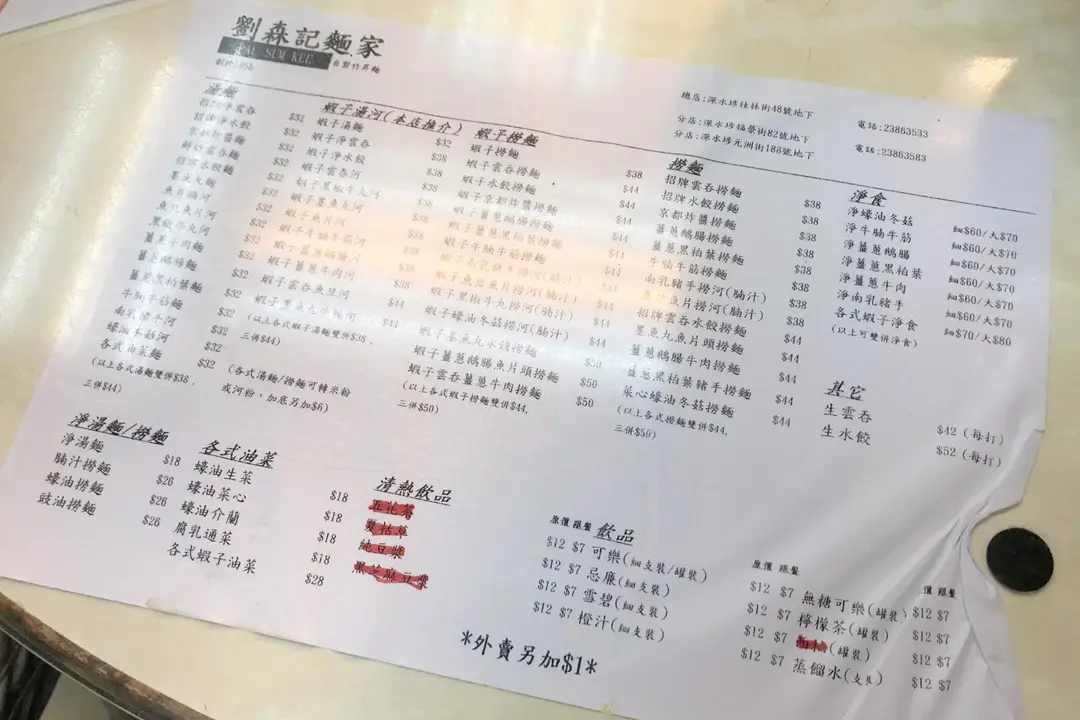 劉森記麵家
LAU SUM KEE
創於1956 自製竹昇麵
總店:深水埗桂林街48號地下 電話:23863533
分店:深水埗福榮街82號地下 電話:23863583
分店:深水埗元洲街188號地下
湯麵
招牌淨雲吞 $32
招牌淨水餃 $32
京都炸醬麵 $32
鮮蝦雲吞麵 $32
招牌水餃麵 $32
墨魚丸麵 $32
魚蛋河 $32
魚片河 $32
黑椒牛丸河 $32
薑蔥牛肉麵
薑蔥鵝腸麵 $32
薑蔥黑柏葉麵 $32
牛腩牛筋麵 $32
南乳豬手河 $32
蠔油冬菇河
各式油菜麵
(以上各式湯麵雙併$38,
三併$44)
蝦子湯河(本店推介)
蝦子湯麵 $32
蝦子淨雲吞 $38
蝦子淨水餃 $38
蝦子雲吞河 $38
蝦子黑椒牛丸河 $38
蝦子墨魚丸河 $38
蝦子魚片河 $38
蝦子牛腩牛筋河 $38
蝦子薑蔥鵝腸河 $38
蝦子薑蔥牛肉河
蝦子雲吞魚旦河 $44
蝦子墨魚丸牛腩河 $44
(以上各式蝦子湯麵雙併$38,
三併$44)
(各式湯麵/撈麵可轉米粉
或河粉,加底另加$6)
蝦子撈麵
蝦子撈麵 $38
蝦子雲吞撈麵 $44
蝦子水餃撈麵 $44
蝦子京都炸醬撈麵 $44
蝦子薑蔥鵝腸撈麵 $44
蝦子薑蔥黑柏葉撈麵 $44
蝦子牛腩牛筋撈麵 $44
蝦子南乳豬手撈河(腩汁) $44
蝦子魚旦魚片撈河(腩汁) $44
蝦子黑椒牛丸撈河(腩汁) $44
蝦子蠔油冬菇撈河(腩汁) $44
蝦子墨魚丸水餃撈麵 $50
蝦子薑蔥鵝腸魚片頭撈麵 $50
蝦子雲吞薑蔥牛肉撈麵 $50
(以上各式蝦子撈麵雙併$44,
三併$50)
撈麵
招牌雲吞撈麵 $38
招牌水餃撈麵 $38
京都炸醬撈麵 $38
薑蔥鵝腸撈麵 $38
薑蔥黑柏葉撈麵 $38
牛腩牛筋撈麵 $38
南乳豬手撈河(腩汁) $38
魚旦魚片撈河(腩汁) $38
招牌雲吞水餃撈麵 $44
墨魚丸魚片頭撈麵 $44
薑蔥鵝腸牛肉撈麵 $44
薑蔥黑柏葉豬手撈麵 $44
菜心蠔油冬菇撈麵 $44
(以上各式撈麵雙併$44,
三併$50)
淨食
淨蠔油冬菇 細$60/大$70
淨牛腩牛筋 細$60/大$70
淨薑蔥鵝腸 細$60/大$70
淨薑蔥黑柏葉 細$60/大$70
淨薑蔥牛肉 細$60/大$70
淨南乳豬手 細$60/大$70
各式蝦子淨食 細$70/大$80
(以上可雙併淨食)
其它
生雲吞 $42 (每打)
生水餃 $52 (每打)
淨湯麵/撈麵
淨湯麵 $18
腩汁撈麵 $26
蠔油撈麵 $26
豉油撈麵 $26
各式油菜
蠔油生菜 $18
蠔油菜心 $18
蠔油介蘭 $18
腐乳通菜 $18
各式蝦子油菜 $28
清熱飲品
五花茶
夏枯草
純豆漿
黑芝麻豆漿
飲品
原價 跟餐
$12 $7 可樂(細支裝/罐裝)
$12 $7 忌廉(細支裝)
$12 $7 雪碧(細支裝)
$12 $7 橙汁(細支裝)
原價 跟餐
$12 $7 無糖可樂(罐裝) $12 $7
$12 $7 檸檬茶(罐裝) $12 $7
$12 $7 (罐裝) $12 $7
$12 $7 蒸餾水(支裝) $12 $7
*外賣另加$1*